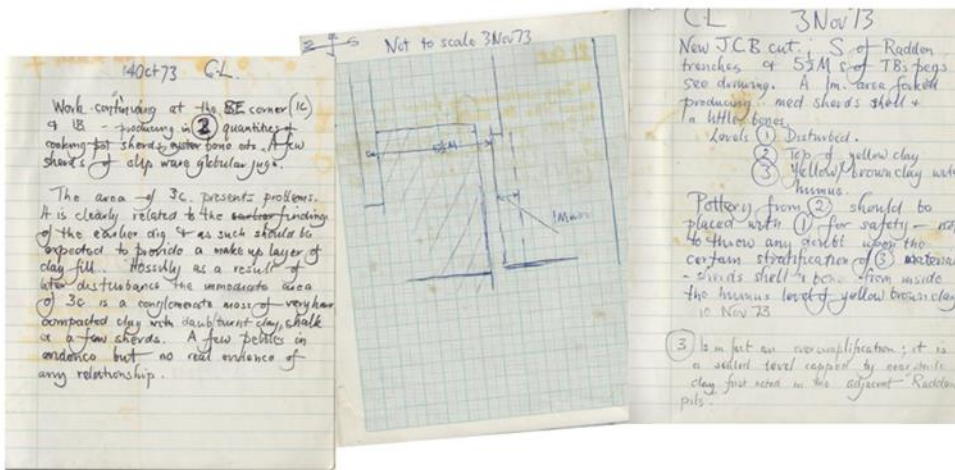 14 Oct 73 C.L.
Work continuing at the SE corner (1C)
& 1B - producing in 2 quantities of
cooking pot sherds, bone etc. A few
sherds of slip ware globular jugs.
The area of 3c. presents problems.
It is clearly related to the earlier findings
of the earlier dig & as such should be
expected to provide a make up layer of
clay fill. Possibly as a result of
later disturbance the immediate area
of 3c is a conglomerate mass of very hard
compacted clay with daub/burnt clay, chalk
& a few sherds. A few pebbles in
evidence but no real evidence of
any relationship.
S
Not to scale 3 Nov 73
5½M
1M
C.L 3 Nov 73
New J.C.B cut: S of Raddon
trenches & 5½M S of TB's pegs
see drawing. A 1m. area forked
producing med sherds shell +
a little bone.
Levels 1 Disturbed.
2 Top of yellow clay
3 Yellow/brown clay with
humus.
Pottery from 2 should be
placed with 1 for safety - not
to throw any doubt upon the
certain stratification of 3 material
- sherds shell & bone from inside
the humus level of yellow brown clay
10 Nov 73
3 Is in fact an oversimplification; it is
a sealed level capped by near sterile
clay first noted in the adjacent Raddon
pits.